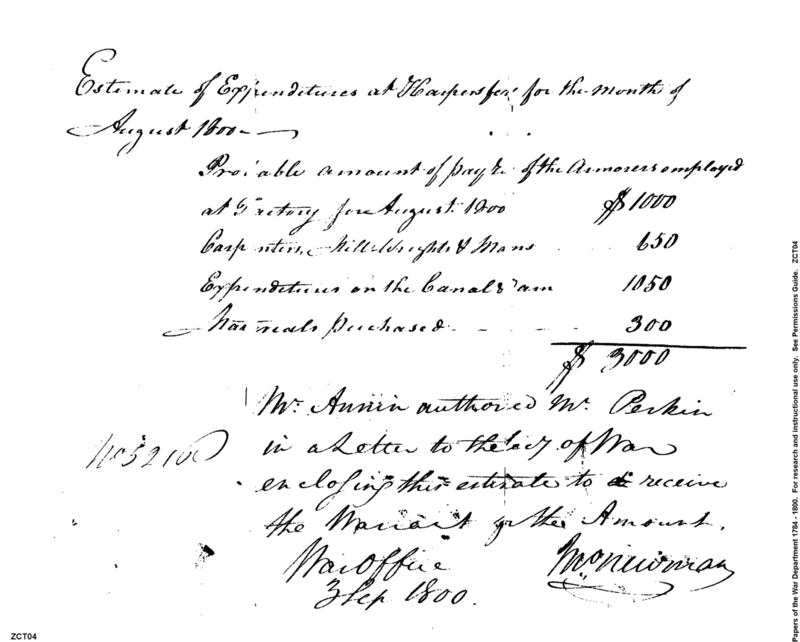 Estimate of Expenditures at Harpersfer for the month of
August 1800
Probable amount of pay &c of the Armorers employed
at Factory for August 1800 $1000
Carpenters, Mill Wrights & Masns 650
Expenditures on the Canal & Dam 1050
Materials purchased 300
$ 3000
Mr. Annin authored Mr. Perkin
in a Letter to the Secy of War
enclosing this estimate to receive
the Warrant for the Amount.
War Office
3 Sep 1800.
Jno Newman
ZCT04
Papers of the War Department 1784 - 1800. For research and instructional use only. See Permissions Guide. ZCT04